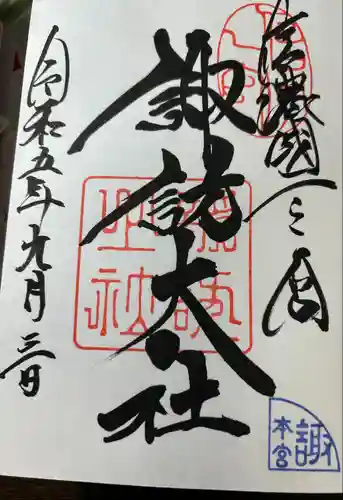 信濃國一之宮
諏訪大社
令和五年九月三日
諏訪
神社
之印
諏
本宮